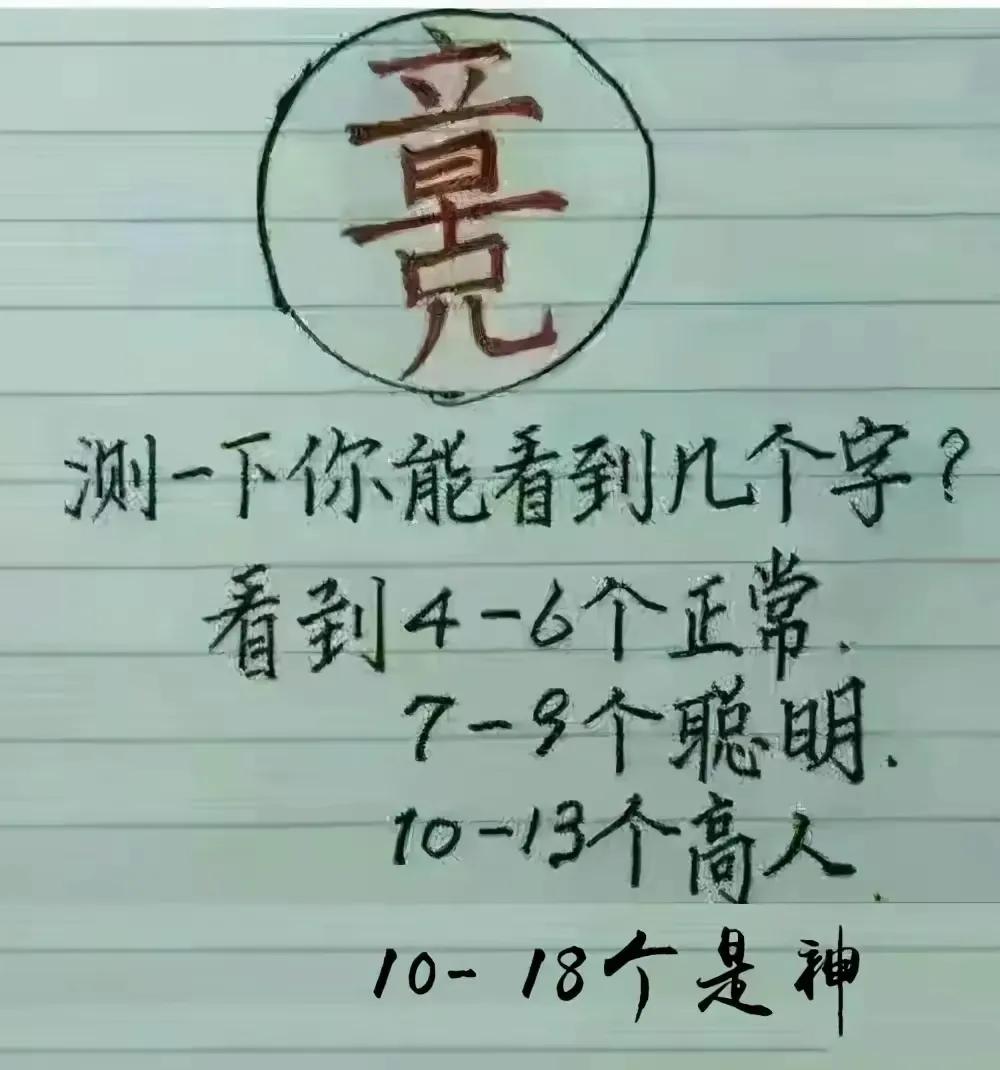 测一下你能看到几个字？
看到4-6个正常.
7-9个聪明.
10-13个高人.
10-18个是神